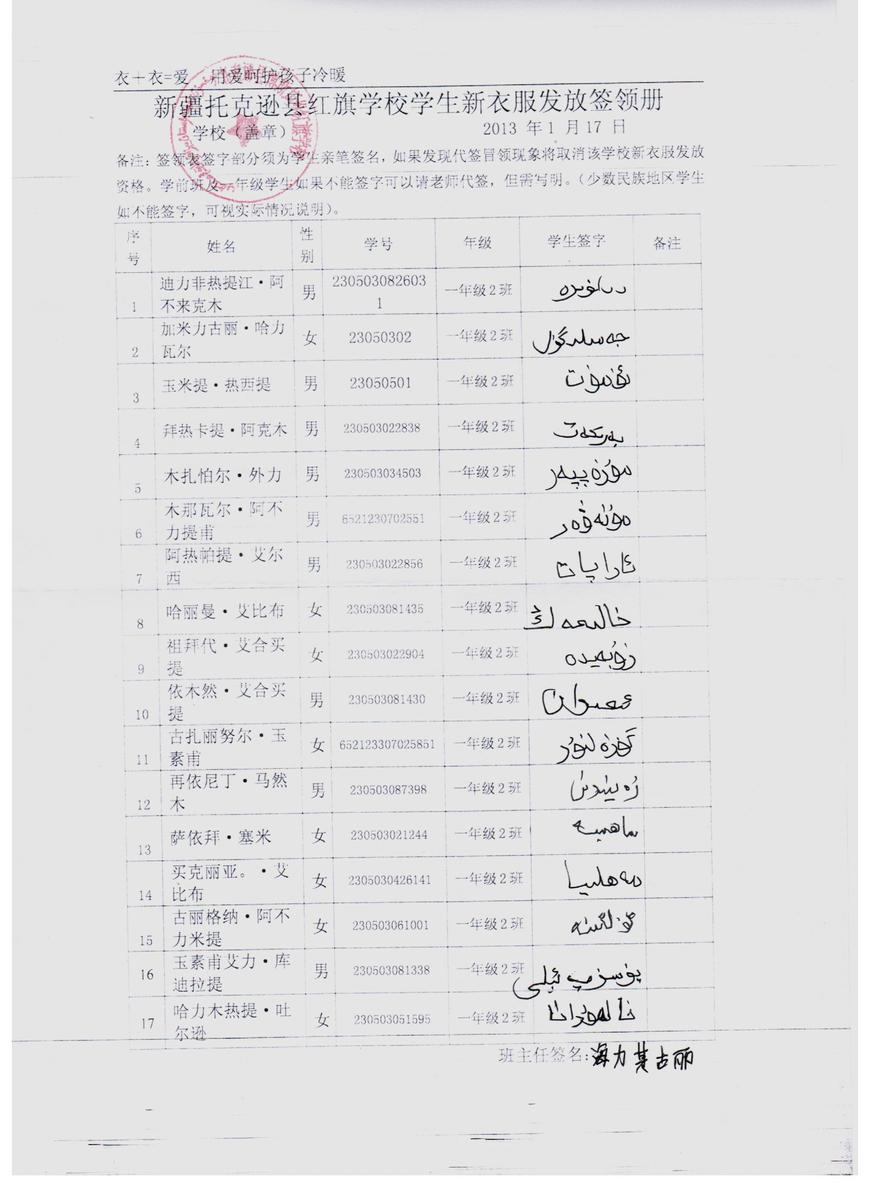 衣＋衣=爱　用爱呵护孩子冷暖
新疆托克逊县红旗学校学生新衣服发放签领册
学校（盖章）　2013 年 1 月 17 日
备注：签领表签字部分须为学生亲笔签名，如果发现代签冒领现象将取消该学校新衣服发放
资格。学前班及一年级学生如果不能签字可以请老师代签，但需写明。（少数民族地区学生
如不能签字，可视实际情况说明）。
序号 姓名 性别 学号 年级 学生签字 备注
1 迪力非热提江·阿不来克木 男 2305030826031 一年级2班
2 加米力古丽·哈力瓦尔 女 23050302 一年级2班
3 玉米提·热西提 男 23050501 一年级2班
4 拜热卡提·阿克木 男 230503022838 一年级2班 بەرىكەت
5 木扎怕尔·外力 男 230503034503 一年级2班 مۇزەپپەر
6 木那瓦尔·阿不力提甫 男 6521230702551 一年级2班 مۇنەۋەر
7 阿热帕提·艾尔西 男 230503022856 一年级2班 ئاراپات
8 哈丽曼·艾比布 女 230503081435 一年级2班
9 祖拜代·艾合买提 女 230503022904 一年级2班 زۇبەيدە
10 依木然·艾合买提 男 230503081430 一年级2班
11 古扎丽努尔·玉素甫 女 652123307025851 一年级2班
12 再依尼丁·马然木 男 230503087398 一年级2班
13 萨依拜·塞米 女 230503021244 一年级2班
14 买克丽亚。·艾比布 女 2305030426141 一年级2班 مەھلىيا
15 古丽格纳·阿不力米提 女 230503061001 一年级2班
16 玉素甫艾力·库迪拉提 男 230503081338 一年级2班
17 哈力木热提·吐尔逊 女 230503051595 一年级2班
班主任签名:海力其古丽